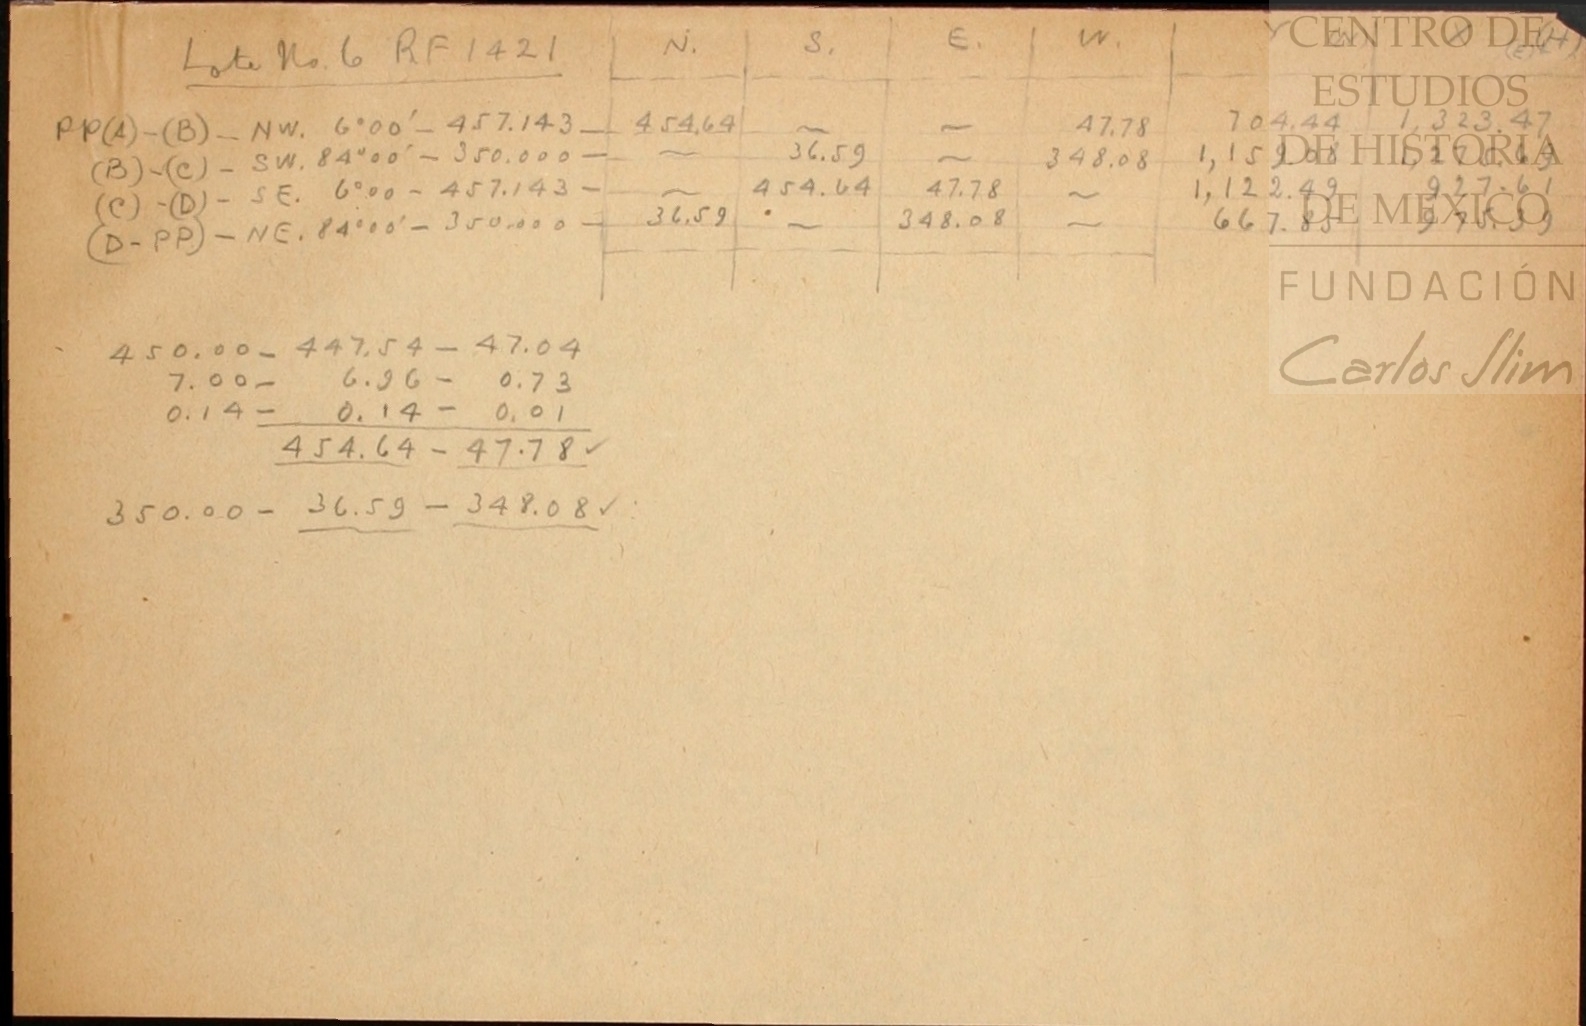 Lote No. 6 RF 1421 N. S. E. W. Y X
PP(A)-(B)- NW. 6°00'- 457.143- 454.64 ~ ~ 47.78 704.44 1,323.47
(B)-(C)- SW. 84°00'- 350.000- ~ 36.59 ~ 348.08 1,159.08 1,275.69
(C)-(D)- SE. 6°00- 457.143- ~ 454.64 47.78 ~ 1,122.49 927.61
(D-PP)- NE. 84°00'- 350.000- 36.59 ~ 348.08 ~ 667.85 975.39
450.00- 447.54- 47.04
7.00- 6.96- 0.73
0.14- 0.14- 0.01
454.64- 47.78✓
350.00- 36.59- 348.08✓
CENTRO DE
ESTUDIOS
DE HISTORIA
DE MÉXICO
FUNDACIÓN
Carlos Slim